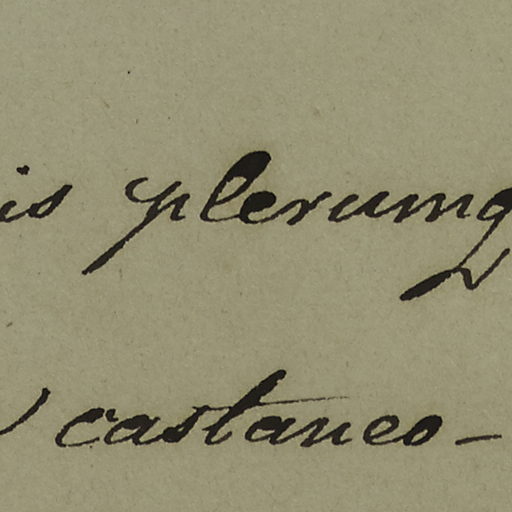 is plerumq
castaneo-